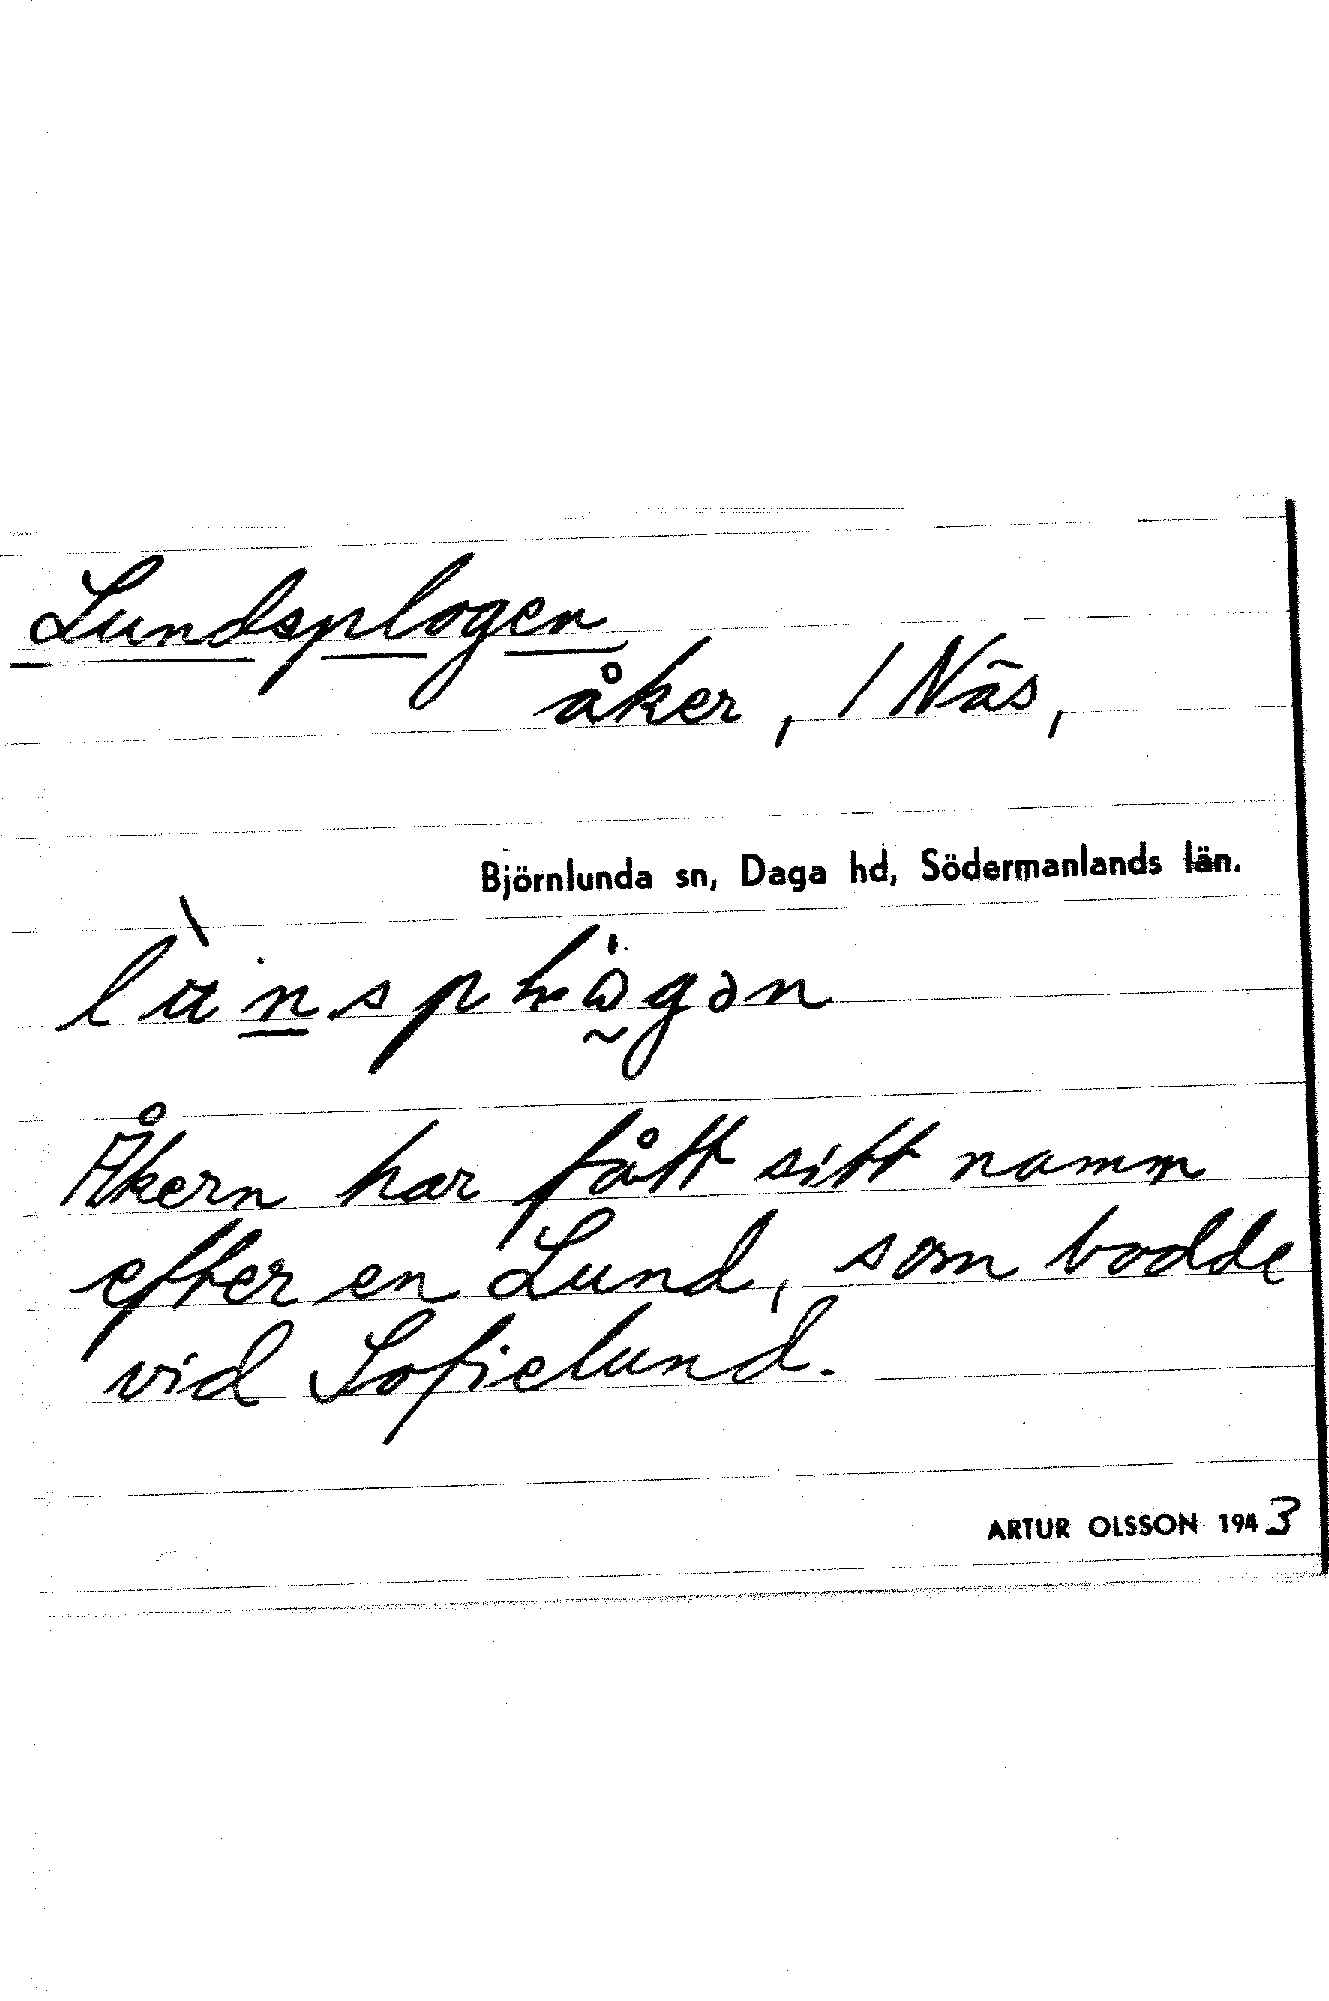 Lundsplogen
åker, / Näs,
Björnlunda sn, Daga hd, Södermanlands län.
Åkern har fått sitt namn
efter en Lund, som bodde
vid Sofielund.
ARTUR OLSSON 1943